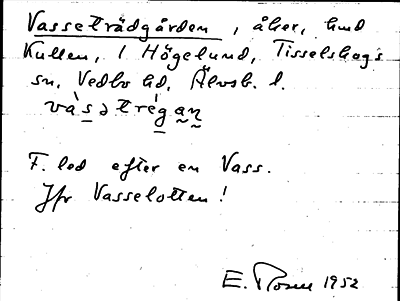 Vasseträdgården, åker, und
Kullen, 1 Högelund, Tisselskogs
sn, Vedbo hd, Älvsb. l.
vàsətrégan
F. led efter en Vass.
Jfr Vasselotten!
E. Rosen 1952